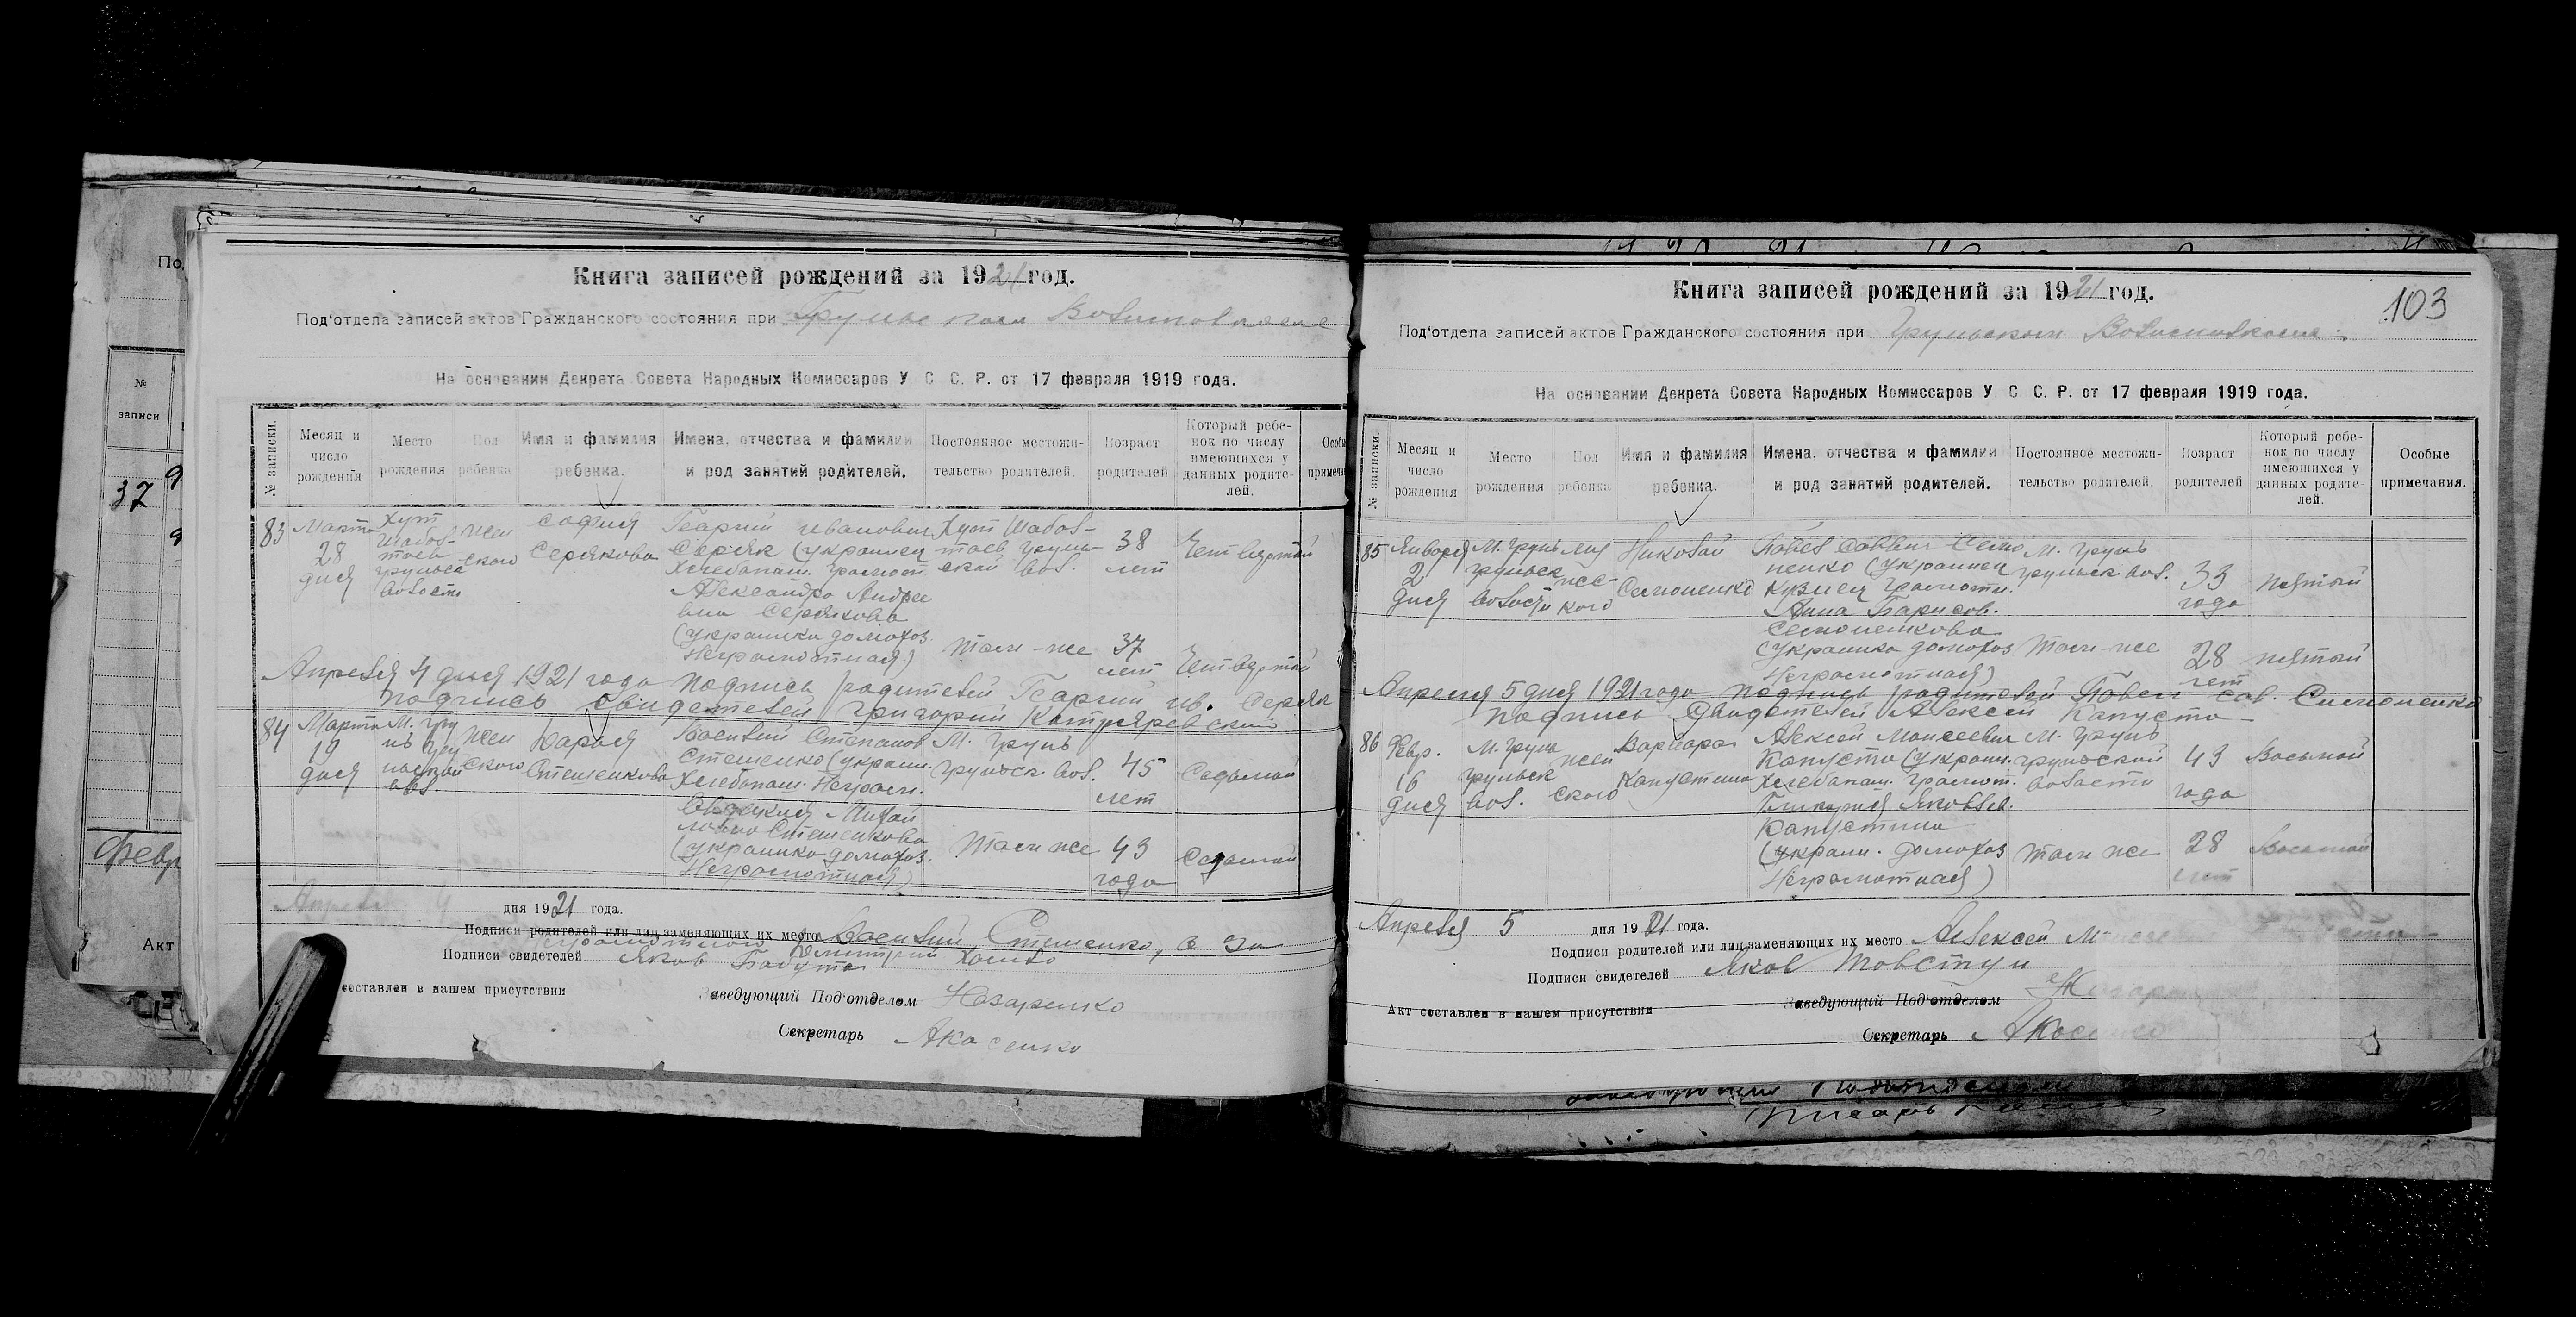 Книга записей рождений за 1921 год.
Под'отдела записей актов Гражданского состояния при Груньском Волисполкоме
На основании Декрета Совета Народных Комиссаров У С С. Р. от 17 февраля 1919 года.
№ записки.
Месяц и число рождения
Место рождения
Пол ребенка
Имя и фамилия ребенка.
Имена, отчества и фамилии и род занятий родителей.
Постоянное местожительство родителей.
Возраст родителей
Который ребенок по числу имеющихся у данных родителей.
83
Марта
28
дня
Хут
Шабол-
таев
груньск
волости
жен
ского
София
Серякова
Георгий Иванович
Серяк (украинец
Хлебопаш. грамот.
Александра Андре
вна Серякова
(украинка домохоз.
Неграмотная)
Хут Шабол-
таев Грунь-
ской вол.
там-же
38
лет
37
лет
Четвертый
Четвертый
Апреля 4 дня 1921 года подпись родителей Георгий Ив. Серяк
подпись свидетелей Григорий Котляревский
84
Марта
19
дня
М. Гру
нь Гру
ньской
вол.
жен
ского
Дарья
Стешенкова
Василий Степанов
Стешенко (украин.
Хлебопаш. Неграм.
Евдокия Михай
ловна Стешенкова
(украинка домохоз.
Неграмотная)
М. Грунь
груньск. вол.
там же
45
лет
43
года
Седьмой
Седьмой
Апреля 4 дня 1921 года.
Подписи родителей или лиц заменяющих их место Василий Стешенко, а за
неграмотного Дмитрий
Подписи свидетелей Яков Бабута
составлен в нашем присутствии
Заведующий Под'отделом Назаренко
Секретарь
Книга записей рождений за 1921 год.
103
Под'отдела записей актов Гражданского состояния при Груньском Волисполкоме.
На основании Декрета Совета Народных Комиссаров У С С. Р. от 17 февраля 1919 года.
№ записки.
Месяц и число рождения
Место рождения
Пол ребенка
Имя и фамилия ребенка.
Имена, отчества и фамилии и род занятий родителей.
Постоянное местожительство родителей.
Возраст родителей
Который ребенок по числу имеющихся у данных родителей.
Особые примечания.
85
Января
2
дня
М. Грунь
груньск
волости
Николай
Симоненко
Павел Саввич Симо
ненко (украинец
кузнец грамотн.
Анна Борисов.
Симоненкова
(украинка домохоз
Неграмотная)
М. Грунь
груньск. вол.
там-же
33
года
28
лет
пятый
пятый
Апреля 5 дня 1921 года подпись родителей Павел Сав. Симоненко
подпись свидетелей Алексей Капуста
86
Февр.
16
дня
М. Грунь
груньск
вол.
жен
ского
Варвара
Капустина
Алексей Моисеевич
Капуста (украин.
Хлебопаш. грамот.
Яковлев.
Капустина
(украин. домохоз
Неграмотная)
М. Грунь
груньской
волости
там же
43
года
28
лет
Восьмой
Восьмой
Апреля 5 дня 1921 года.
Подписи родителей или лиц заменяющих их место Алексей
Подписи свидетелей Яков Товстун
Акт составлен в нашем присутствии
Заведующий Под'отделом
Секретарь
№
записи
37
Акт